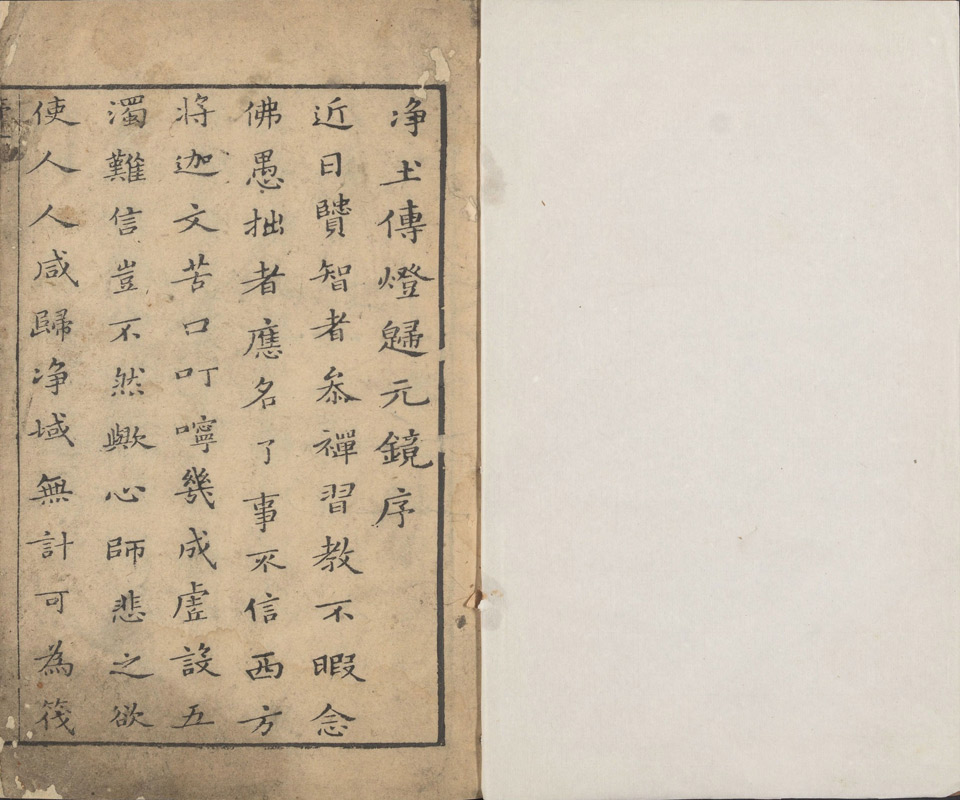 净土傳燈歸元鏡序
近日智者叅禪習教不暇念
佛愚拙者應名了事不信西方
将迦文苦口叮嚀幾成虗設五
濁難信豈不然歟心師悲之欲
使人人咸歸净域無計可為筏